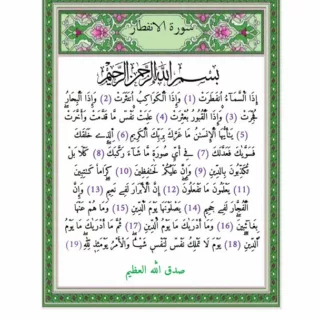 سورة الانفطار
بِسْمِ اللَّهِ الرَّحْمَٰنِ الرَّحِيمِ
إِذَا السَّمَاءُ انفَطَرَتْ (1) وَإِذَا الْكَوَاكِبُ انتَثَرَتْ (2) وَإِذَا الْبِحَارُ
فُجِّرَتْ (3) وَإِذَا الْقُبُورُ بُعْثِرَتْ (4) عَلِمَتْ نَفْسٌ مَّا قَدَّمَتْ وَأَخَّرَتْ
(5) يَا أَيُّهَا الْإِنسَانُ مَا غَرَّكَ بِرَبِّكَ الْكَرِيمِ (6) الَّذِي خَلَقَكَ
فَسَوَّاكَ فَعَدَلَكَ (7) فِي أَيِّ صُورَةٍ مَّا شَاءَ رَكَّبَكَ (8) كَلَّا بَلْ
تُكَذِّبُونَ بِالدِّينِ (9) وَإِنَّ عَلَيْكُمْ لَحَافِظِينَ (10) كِرَامًا كَاتِبِينَ
(11) يَعْلَمُونَ مَا تَفْعَلُونَ (12) إِنَّ الْأَبْرَارَ لَفِي نَعِيمٍ (13) وَإِنَّ
الْفُجَّارَ لَفِي جَحِيمٍ (14) يَصْلَوْنَهَا يَوْمَ الدِّينِ (15) وَمَا هُمْ عَنْهَا
بِغَائِبِينَ (16) وَمَا أَدْرَاكَ مَا يَوْمُ الدِّينِ (17) ثُمَّ مَا أَدْرَاكَ مَا يَوْمُ
الدِّينِ (18) يَوْمَ لَا تَمْلِكُ نَفْسٌ لِّنَفْسٍ شَيْئًا وَالْأَمْرُ يَوْمَئِذٍ لِّلَّهِ (19)
صدق الله العظيم